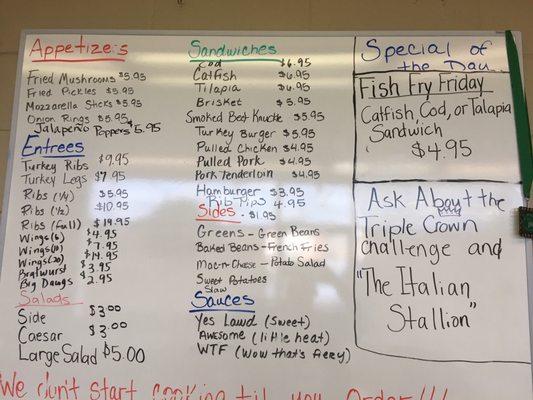 Appetizers
Fried Mushrooms $5.95
Fried Pickles $5.95
Mozzarella Sticks $5.95
Onion Rings $5.95
Jalapeño Poppers $5.95
Entrees
Turkey Ribs $9.95
Turkey Legs $7.95
Ribs (1/4) $5.95
Ribs (1/2) $10.95
Ribs (full) $19.95
Wings (6) $4.95
Wings (10) $7.95
Wings (20) $14.95
Bratwurst $3.95
Big Dawgs $2.95
Salads
Side $3.00
Caesar $3.00
Large Salad $5.00
Sandwiches
Cod $6.95
Catfish $6.95
Tilapia $6.95
Brisket $5.95
Smoked Beef Knuckle $5.95
Turkey Burger $5.95
Pulled Chicken $4.95
Pulled Pork $4.95
Pork Tenderloin $4.95
Hamburger $3.95
Rib Tips 4.95
Sides - $1.95
Greens - Green Beans
Baked Beans - French Fries
Mac-n-Cheese - Potato Salad
Sweet Potatoes
Slaw
Sauces
Yes Lawd (sweet)
Awesome (little heat)
WTF (wow that's fiery)
Special of
the Day
Fish Fry Friday
Catfish, Cod, or Talapia
Sandwich
$4.95
Ask About the
Triple Crown
challenge and
"The Italian
Stallion"
We don't start cooking til you order!!!